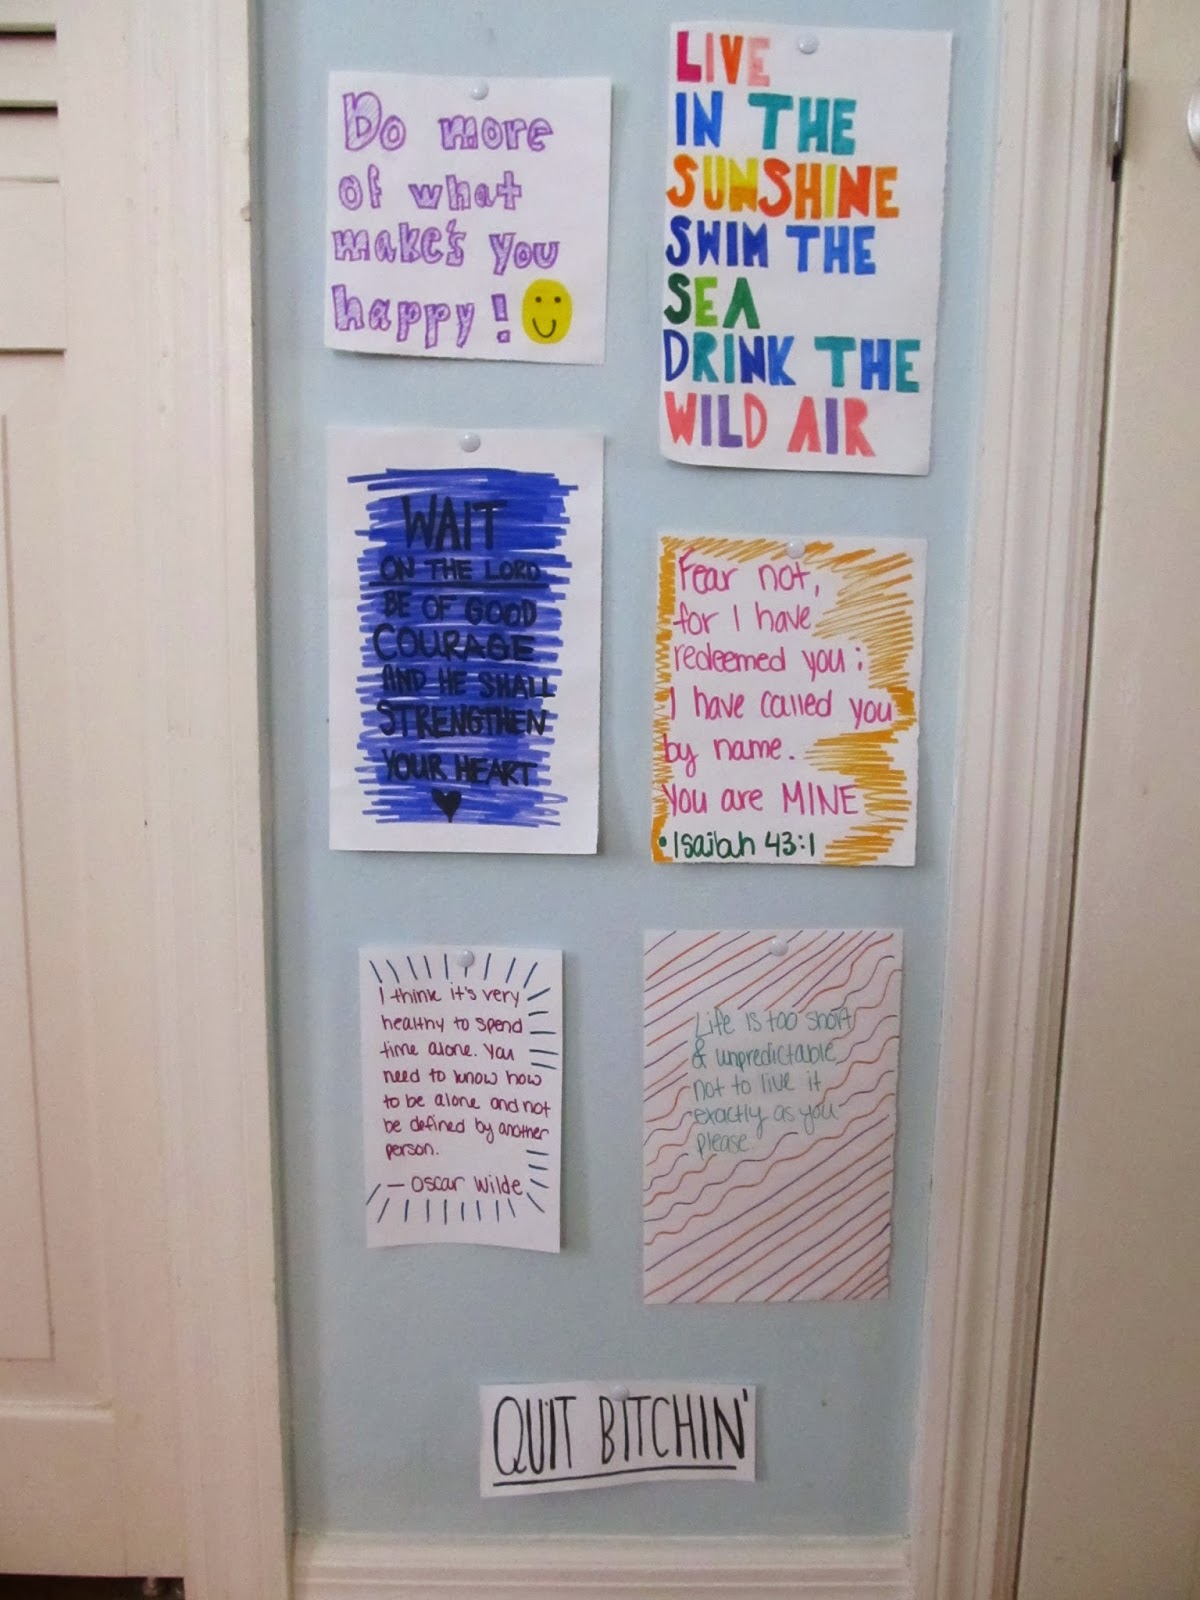 Do more
of what
make's you
happy!
LIVE
IN THE
SUNSHINE
SWIM THE
SEA
DRINK THE
WILD AIR
WAIT
ON THE LORD
BE OF GOOD
COURAGE
AND HE SHALL
STRENGTHEN
YOUR HEART
Fear not,
for I have
redeemed you;
I have called you
by name.
you are MINE
• Isaiah 43:1
I think it's very
healthy to spend
time alone. You
need to know how
to be alone and not
be defined by another
person.
— Oscar Wilde
Life is too short
& unpredictable
not to live it
exactly as you
please
QUIT BITCHIN'